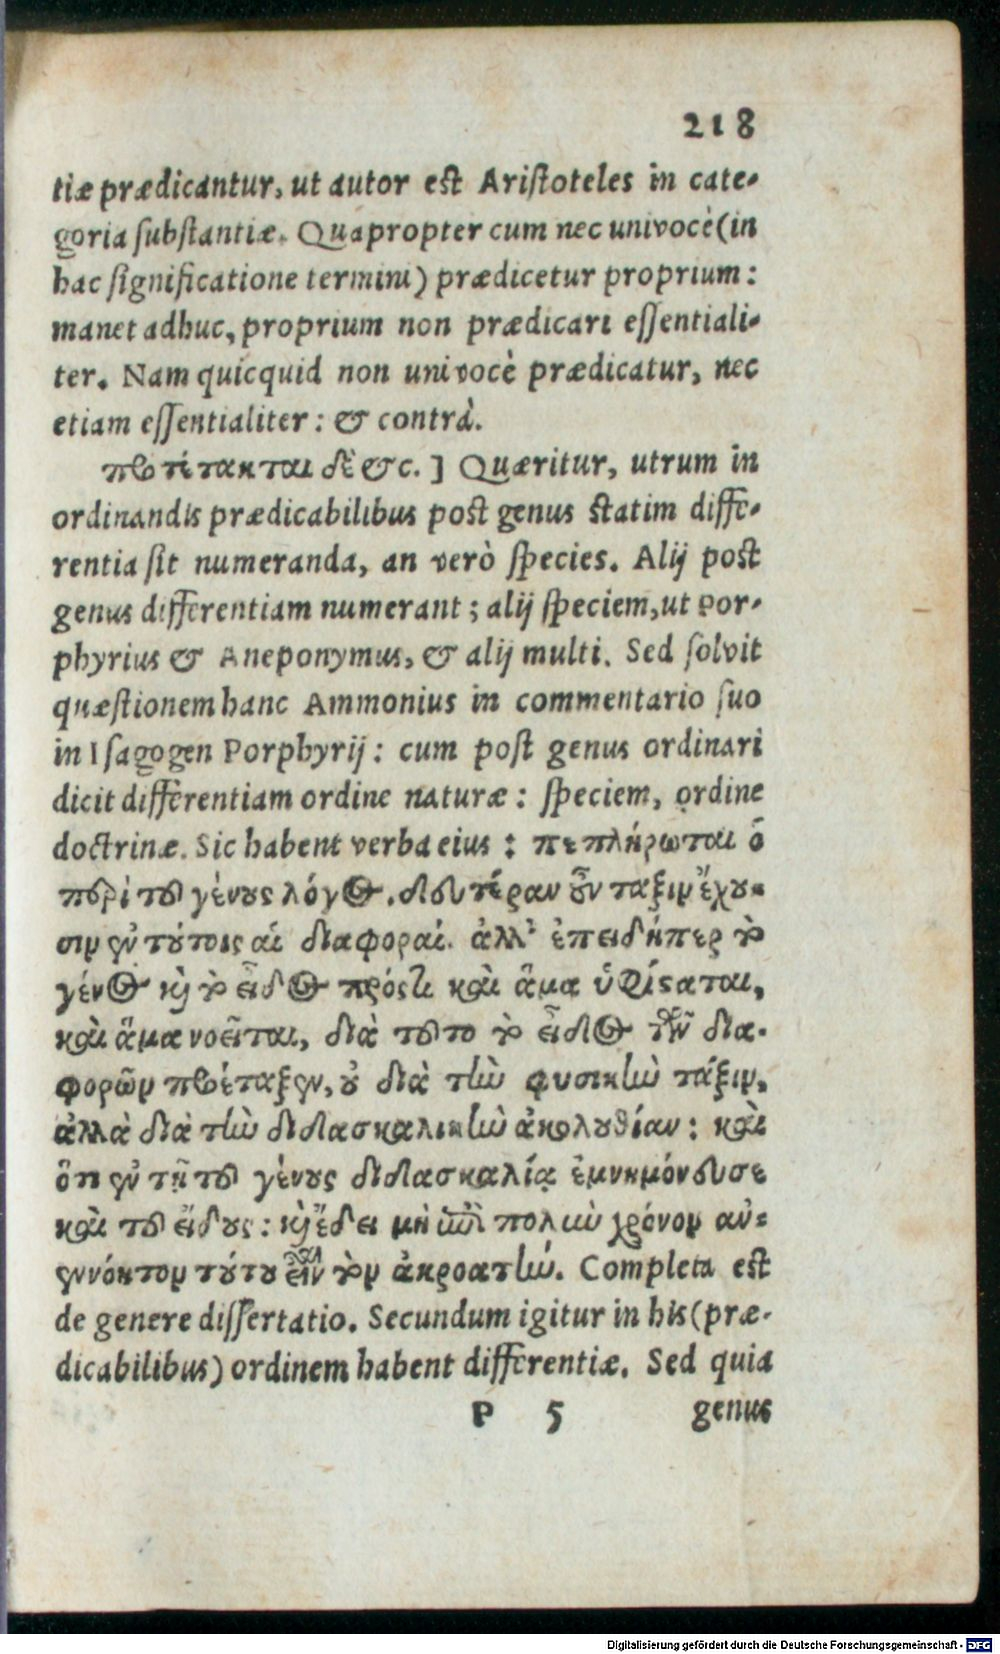 218
tiæ prædicantur, ut autor est Aristoteles in cate-
goria substantiæ. Quapropter cum nec univocè (in
hac significatione termini) prædicetur proprium:
manet adhuc, proprium non prædicari essentiali-
ter. Nam quicquid non univocè prædicatur, nec
etiam essentialiter: & contrà.
προτέτακται δὲ &c.] Quæritur, utrum in
ordinandis prædicabilibus post genus statim diffe-
rentia sit numeranda, an verò species. Alij post
genus differentiam numerant; alij speciem, ut Por-
phyrius & Aneponymus, & alij multi. Sed solvit
quæstionem hanc Ammonius in commentario suo
in Isagogen Porphyrij: cum post genus ordinari
dicit differentiam ordine naturæ: speciem, ordine
doctrinæ. Sic habent verba eius: πεπλήρωται ὁ
περὶ τοῦ γένους λόγος. δευτέραν οὖν τάξιν ἔχου-
σιν ἐν τούτοις αἱ διαφοραί. ἀλλ' ἐπειδήπερ τὸ
γένος καὶ τὸ εἶδος πρός τι καὶ ἅμα ὑφίσαται,
καὶ ἅμα νοεῖται, διὰ τοῦτο τὸ εἶδος τῶν δια-
φορῶν προέταξεν, οὐ διὰ τὴν φυσικὴν τάξιν,
ἀλλὰ διὰ τὴν διδασκαλικὴν ἀκολουθίαν: καὶ
ὅτι ἐν τῇ τοῦ γένους διδασκαλίᾳ ἐμνημόνευσε
καὶ τοῦ εἴδους: καὶ ἔδει μὴ ἐπὶ πολὺν χρόνον ἀν-
εννόητον τούτου εἶναι τὸν ἀκροατήν. Completa est
de genere dissertatio. Secundum igitur in his (præ-
dicabilibus) ordinem habent differentiæ. Sed quia
P 5 genus
Digitalisierung gefördert durch die Deutsche Forschungsgemeinschaft - DFG